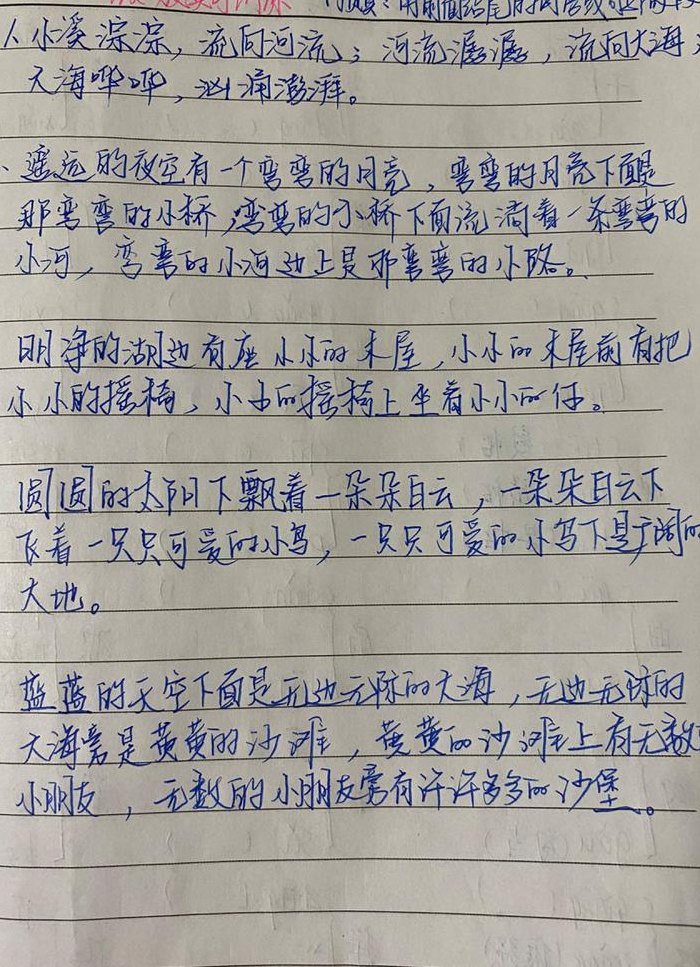 顶真：用前面结尾的词语或句子做
1、小溪淙淙，流向河流；河流潺潺，流向大海；
大海哗哗，汹涌澎湃。
、遥远的夜空有一个弯弯的月亮，弯弯的月亮下面是
那弯弯的小桥，弯弯的小桥下面流淌着一条弯弯的
小河，弯弯的小河边上是那弯弯的小路。
明净的湖边有座小小的木屋，小小的木屋前有把
小小的摇椅，小小的摇椅上坐着小小的你。
圆圆的太阳下飘着一朵朵白云，一朵朵白云下
飞着一只只可爱的小鸟，一只只可爱的小鸟下是广阔的
大地。
蓝蓝的天空下面是无边无际的大海，无边无际的
大海旁是黄黄的沙滩，黄黄的沙滩上有无数
小朋友，无数的小朋友旁有许许多多的沙堡。